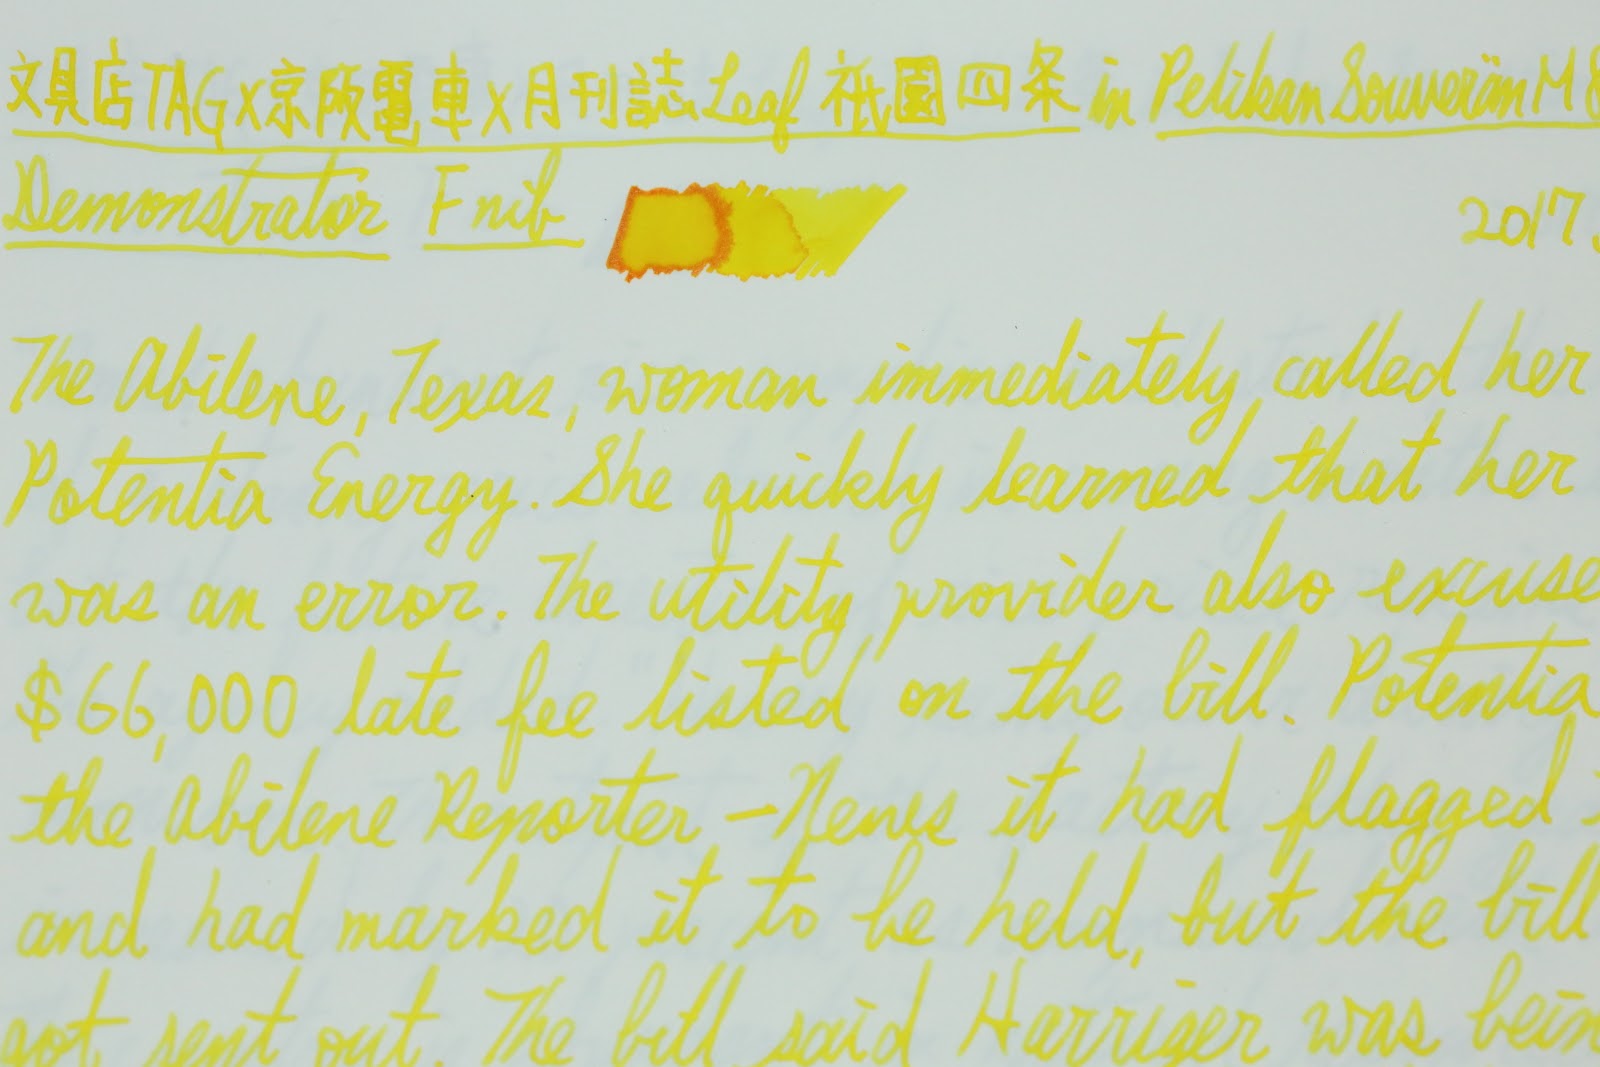 文具店TAG×京阪電車×月刊誌Leaf 祇園四条 in Pelikan Souverän M8
Demonstrator F nib
2017.
The Abilene, Texas, woman immediately called her
Potentia Energy. She quickly learned that her
was an error. The utility provider also excuse
$66,000 late fee listed on the bill. Potentia
the Abilene Reporter-News it had flagged
and had marked it to be held, but the bill
got sent out. The bill said Harriger was bein